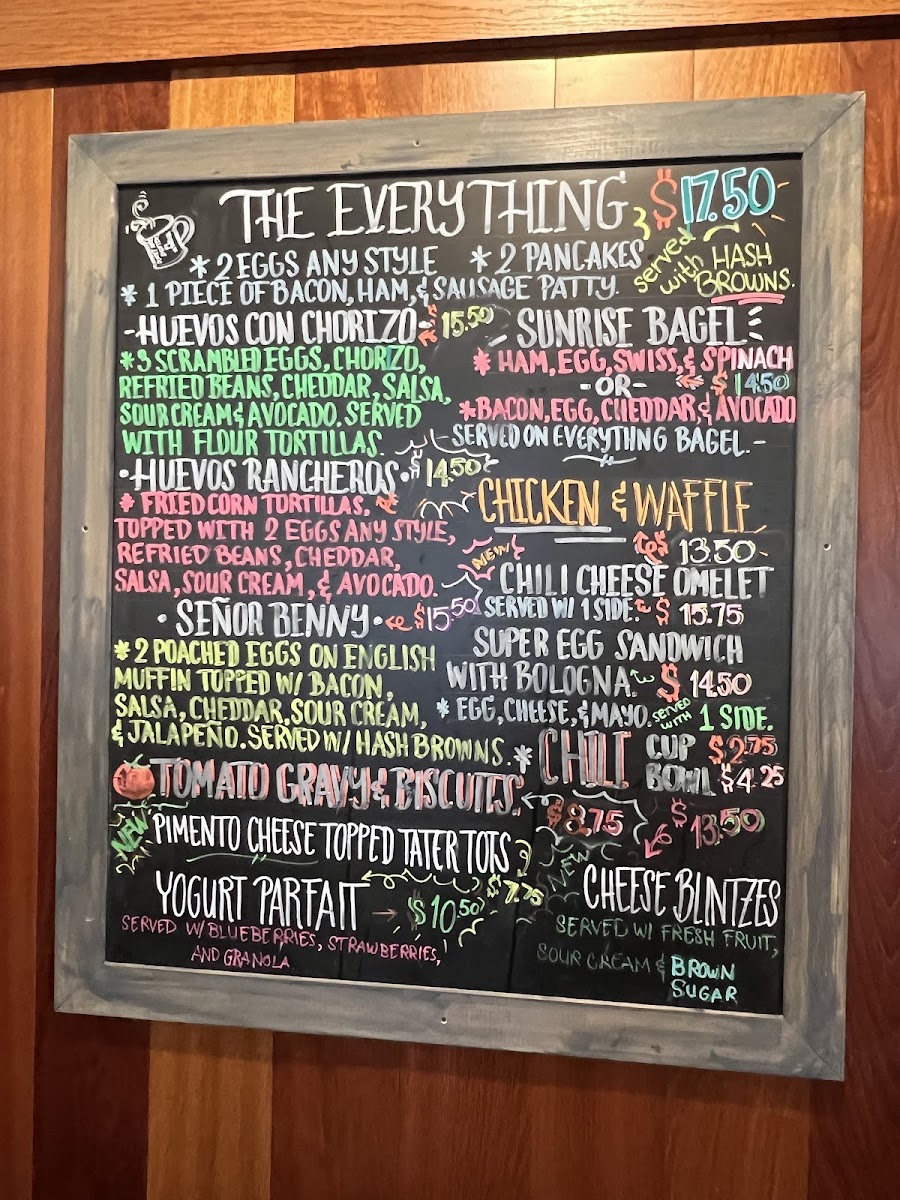 THE EVERYTHING $17.50
* 2 EGGS ANY STYLE * 2 PANCAKES
* 1 PIECE OF BACON, HAM, & SAUSAGE PATTY.
served with HASH BROWNS.
-HUEVOS CON CHORIZO- 15.50
* 3 SCRAMBLED EGGS, CHORIZO,
REFRIED BEANS, CHEDDAR, SALSA,
SOUR CREAM & AVOCADO. SERVED
WITH FLOUR TORTILLAS.
• HUEVOS RANCHEROS • $14.50
* FRIED CORN TORTILLAS,
TOPPED WITH 2 EGGS ANY STYLE,
REFRIED BEANS, CHEDDAR,
SALSA, SOUR CREAM, & AVOCADO.
• SEÑOR BENNY • $15.50
* 2 POACHED EGGS ON ENGLISH
MUFFIN TOPPED W/ BACON,
SALSA, CHEDDAR, SOUR CREAM,
& JALAPEÑO. SERVED W/ HASH BROWNS.
SUNRISE BAGEL
* HAM, EGG, SWISS, & SPINACH
-OR- $14.50
* BACON, EGG, CHEDDAR, & AVOCADO
SERVED ON EVERYTHING BAGEL.-
CHICKEN & WAFFLE
13.50
NEW
CHILI CHEESE OMELET
SERVED W/ 1 SIDE. $15.75
SUPER EGG SANDWICH
WITH BOLOGNA. $14.50
* EGG, CHEESE, & MAYO. SERVED WITH 1 SIDE.
* CHILI CUP $2.75
BOWL $4.25
TOMATO GRAVY & BISCUITS. $8.75
NEW PIMENTO CHEESE TOPPED TATER TOTS $7.75
YOGURT PARFAIT $10.50
SERVED W/ BLUEBERRIES, STRAWBERRIES,
AND GRANOLA
$13.50
NEW CHEESE BLINTZES
SERVED W/ FRESH FRUIT,
SOUR CREAM & BROWN
SUGAR